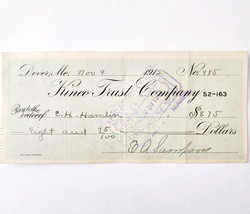 Dover, Me. Nov 9 1915 No. 985
Kineo Trust Company 52-163
Pay to the order of E. H. Hamlin $8.75
Eight and 75/100 Dollars
E A Sampson